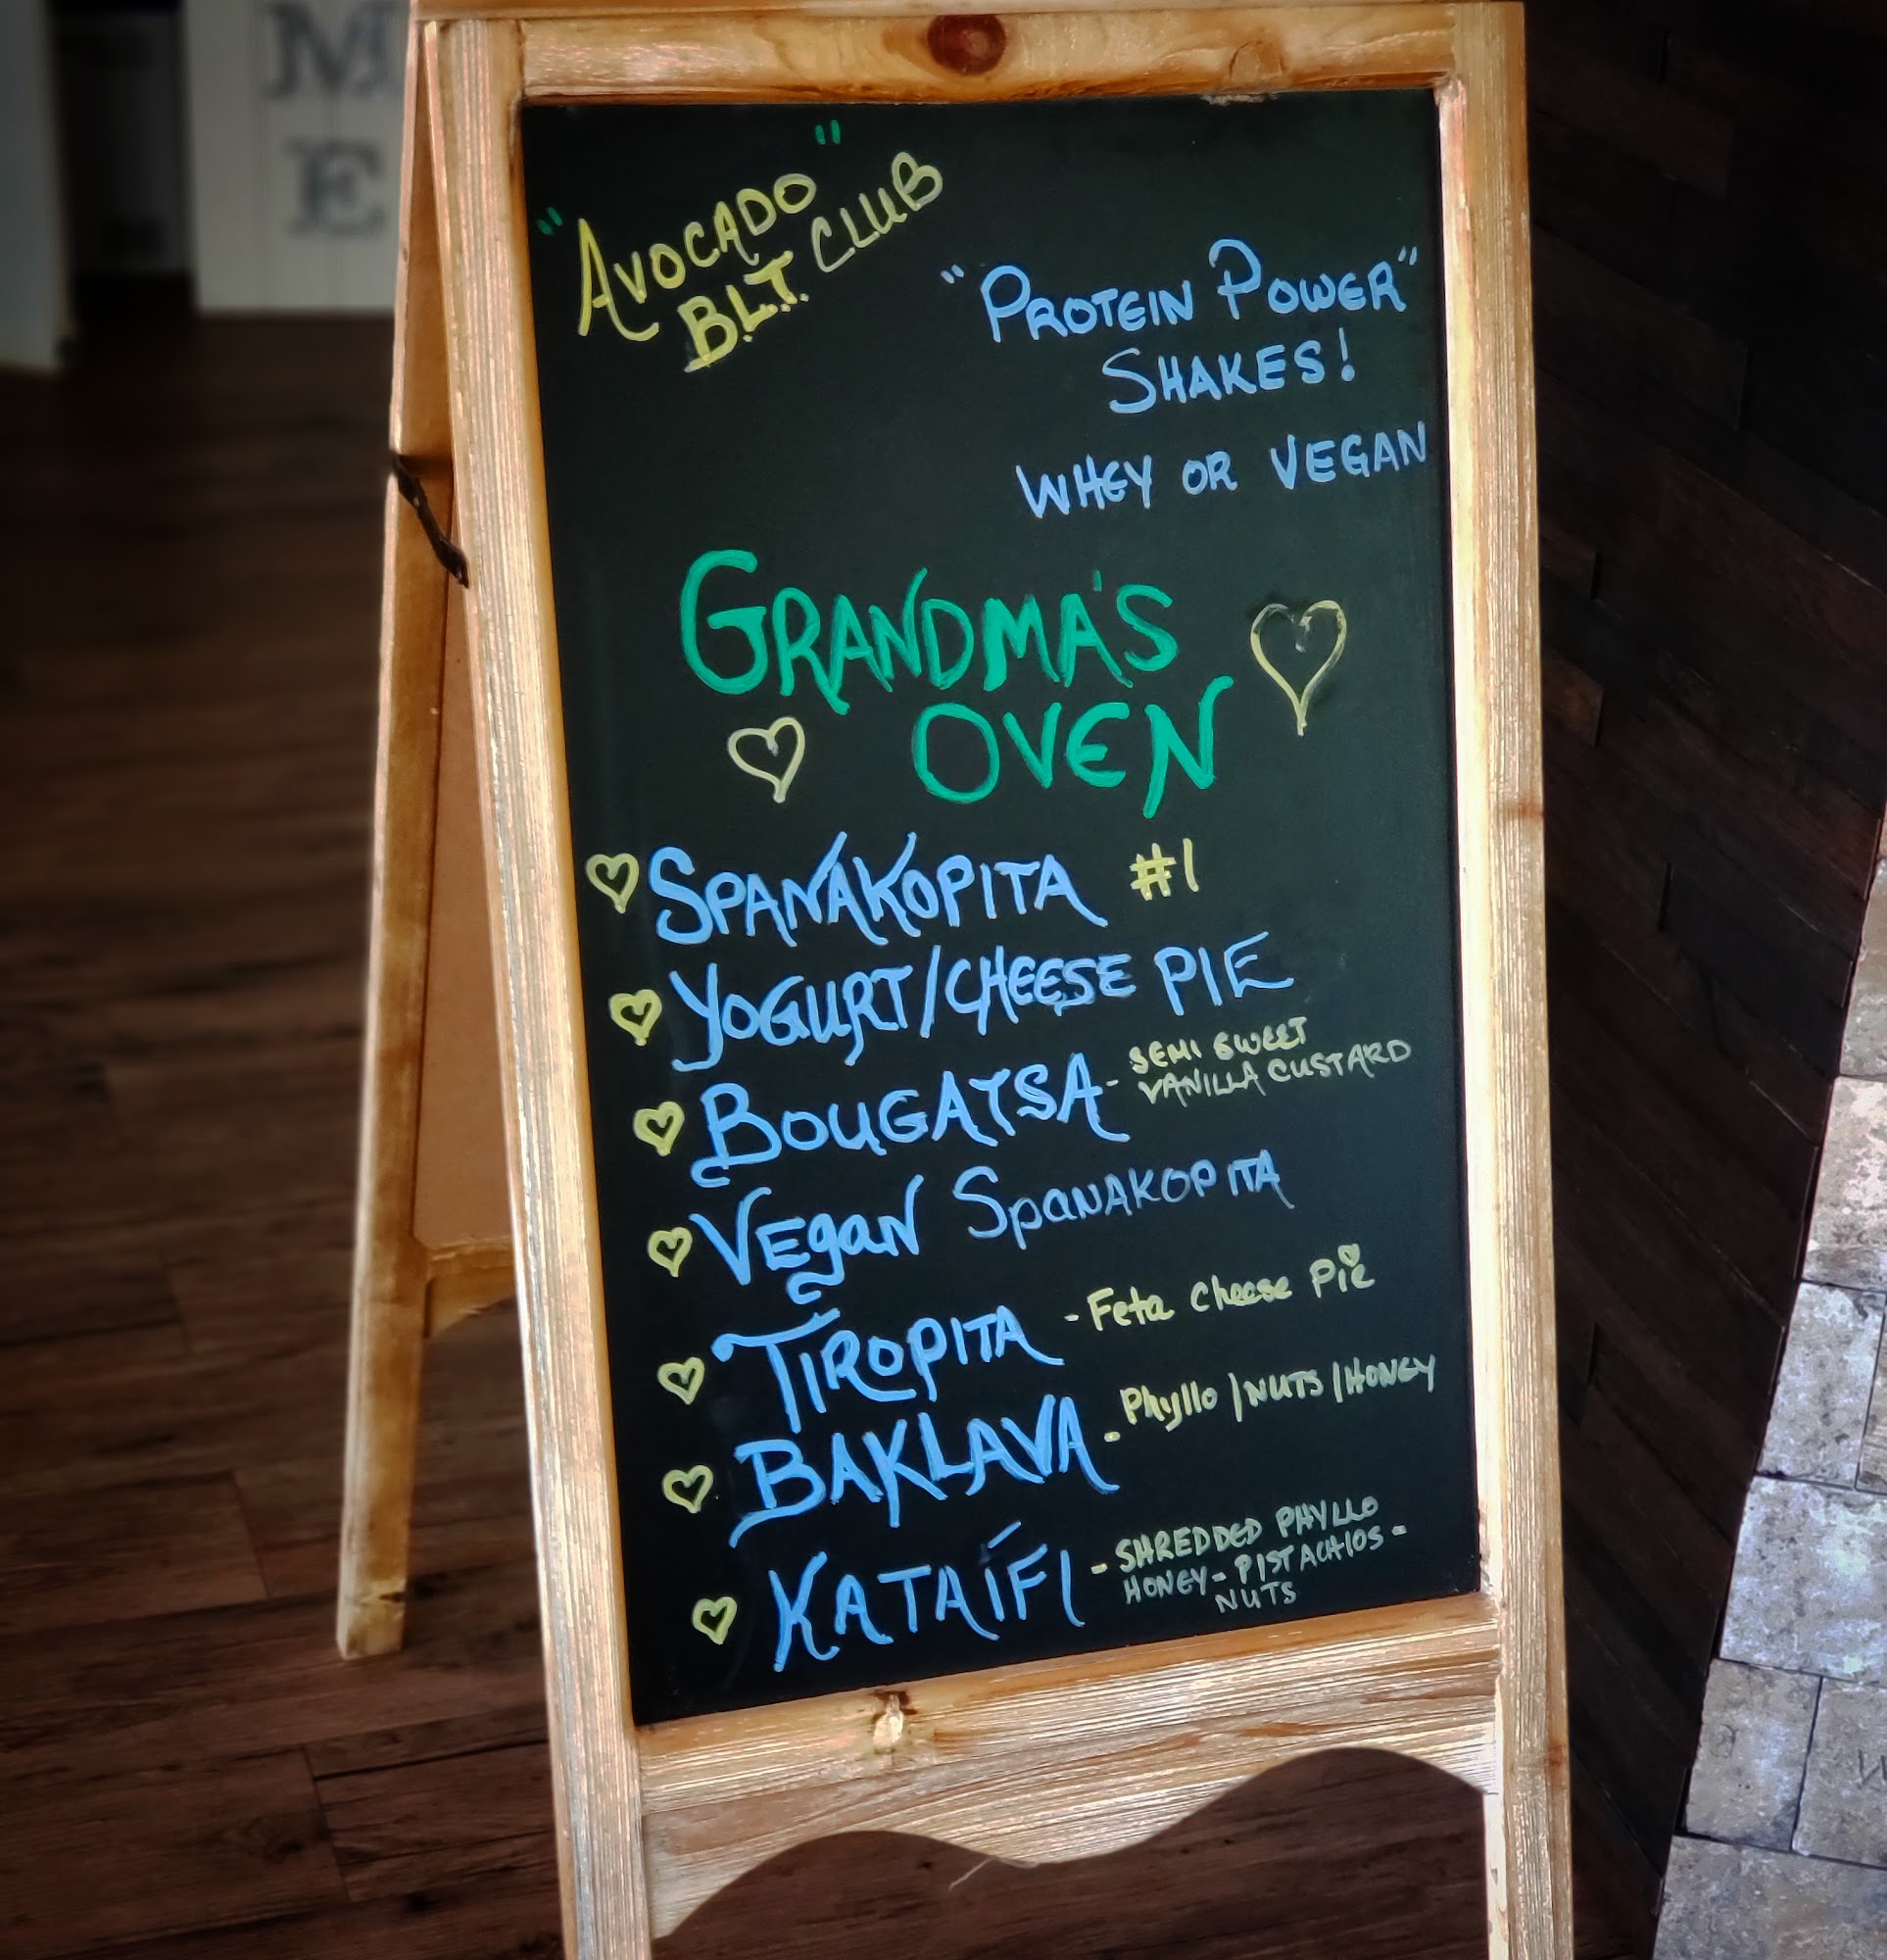 M
E
"AVOCADO"
B.L.T. CLUB
"PROTEIN POWER"
SHAKES!
WHEY OR VEGAN
GRANDMA'S
OVEN
SPANAKOPITA #1
YOGURT/CHEESE PIE
BOUGATSA - SEMI SWEET
VANILLA CUSTARD
VEgaN SpaNAKOPITA
TIROPITA - Feta Cheese Pie
BAKLAVA - Phyllo/NUTS/HONEY
KATAÍFI - SHREDDED PHYLLO
HONEY - PISTACHIOS -
NUTS